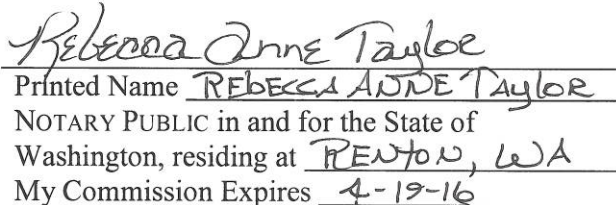 Rebecca Anne Taylor
Printed Name REbECCA ANNE TAyloR
NOTARY PUBLIC in and for the State of
Washington, residing at RENtON, WA
My Commission Expires 4-19-16